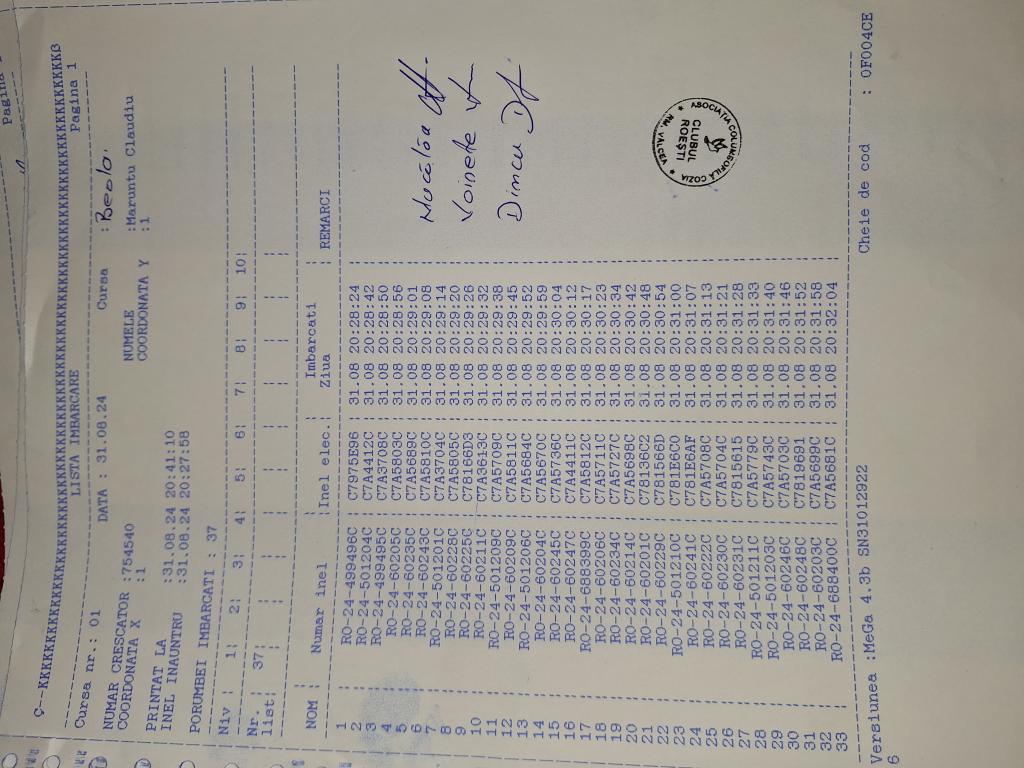 Pagina
Ç--KKKKKKKKKKKKKKKKKKKKKKKKKKKKKKKKKKKKKKKKKKKKKKKKKKKKKKKKKKKKKKKKKKKKKKKKKKß
LISTA IMBARCARE Pagina 1
Cursa nr.: 01 DATA : 31.08.24 Cursa :Beolo
NUMAR CRESCATOR :754540 NUMELE :Maruntu Claudiu
COORDONATA X :1 COORDONATA Y :1
PRINTAT LA :31.08.24 20:41:10
INEL INAUNTRU :31.08.24 20:27:58
PORUMBEI IMBARCATI : 37
Niv : 1¦ 2¦ 3¦ 4¦ 5¦ 6¦ 7¦ 8¦ 9¦ 10¦
Nr. ¦ 37¦ ¦ ¦ ¦ ¦ ¦ ¦ ¦ ¦ ¦
list¦ ¦ ¦ ¦ ¦ ¦ ¦ ¦ ¦ ¦ ¦
NOM ¦ Numar inel ¦Inel elec.¦ Imbarcati ¦ REMARCI
Ziua
1 ¦ RO-24-499496C ¦ C7975E96 ¦ 31.08 20:28:24 ¦
2 ¦ RO-24-501204C ¦ C7A4412C ¦ 31.08 20:28:42 ¦
3 ¦ RO-24-499495C ¦ C7A3708C ¦ 31.08 20:28:50 ¦
4 ¦ RO-24-60205C ¦ C7A5803C ¦ 31.08 20:28:56 ¦
5 ¦ RO-24-60235C ¦ C7A5689C ¦ 31.08 20:29:01 ¦
6 ¦ RO-24-60243C ¦ C7A5810C ¦ 31.08 20:29:08 ¦
7 ¦ RO-24-501201C ¦ C7A3704C ¦ 31.08 20:29:14 ¦
8 ¦ RO-24-60228C ¦ C7A5805C ¦ 31.08 20:29:20 ¦
9 ¦ RO-24-60225C ¦ C78166D3 ¦ 31.08 20:29:26 ¦
10 ¦ RO-24-60211C ¦ C7A3613C ¦ 31.08 20:29:32 ¦
11 ¦ RO-24-501209C ¦ C7A5709C ¦ 31.08 20:29:38 ¦
12 ¦ RO-24-60209C ¦ C7A5811C ¦ 31.08 20:29:45 ¦
13 ¦ RO-24-501206C ¦ C7A5684C ¦ 31.08 20:29:52 ¦
14 ¦ RO-24-60204C ¦ C7A5670C ¦ 31.08 20:29:59 ¦
15 ¦ RO-24-60245C ¦ C7A5736C ¦ 31.08 20:30:04 ¦
16 ¦ RO-24-60247C ¦ C7A4411C ¦ 31.08 20:30:12 ¦
17 ¦ RO-24-688399C ¦ C7A5812C ¦ 31.08 20:30:17 ¦
18 ¦ RO-24-60206C ¦ C7A5711C ¦ 31.08 20:30:23 ¦
19 ¦ RO-24-60234C ¦ C7A5727C ¦ 31.08 20:30:34 ¦
20 ¦ RO-24-60214C ¦ C7A5698C ¦ 31.08 20:30:42 ¦
21 ¦ RO-24-60201C ¦ C78136C2 ¦ 31.08 20:30:48 ¦
22 ¦ RO-24-60229C ¦ C781566D ¦ 31.08 20:30:54 ¦
23 ¦ RO-24-501210C ¦ C781E6C0 ¦ 31.08 20:31:00 ¦
24 ¦ RO-24-60241C ¦ C781E6AF ¦ 31.08 20:31:07 ¦
25 ¦ RO-24-60222C ¦ C7A5708C ¦ 31.08 20:31:13 ¦
26 ¦ RO-24-60230C ¦ C7A5704C ¦ 31.08 20:31:21 ¦
27 ¦ RO-24-60231C ¦ C7815615 ¦ 31.08 20:31:28 ¦
28 ¦ RO-24-501211C ¦ C7A5779C ¦ 31.08 20:31:33 ¦
29 ¦ RO-24-501203C ¦ C7A5743C ¦ 31.08 20:31:40 ¦
30 ¦ RO-24-60246C ¦ C7A5703C ¦ 31.08 20:31:46 ¦
31 ¦ RO-24-60248C ¦ C7819691 ¦ 31.08 20:31:52 ¦
32 ¦ RO-24-60203C ¦ C7A5699C ¦ 31.08 20:31:58 ¦
33 ¦ RO-24-688400C ¦ C7A5681C ¦ 31.08 20:32:04 ¦
Voinete
Dimcu
ASOCIATIA COLUMBOFILA COZIA
RM. VALCEA
CLUBUL
ROEȘTI
Versiunea :MeGa 4.3b SN31012922 Cheie de cod : 0F004CE
6